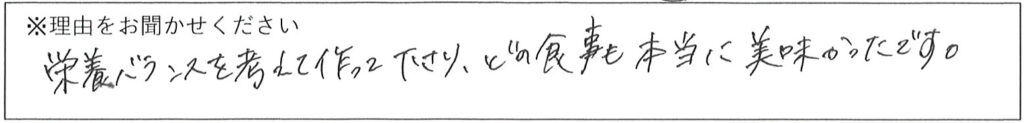 ※理由をお聞かせください
栄養バランスを考えて作って下さり、どの食事も本当に美味かったです。